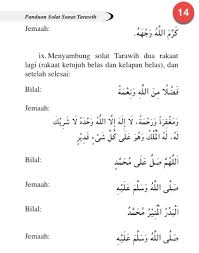 Panduan Solat Sunat Tarawih
14
Jemaah:
كَرَّمَ اللَّهُ وَجْهَهُ.
ix. Menyambung solat Tarawih dua rakaat
lagi (rakaat ketujuh belas dan kelapan belas), dan
setelah selesai:
Bilal:
فَضْلًا مِنَ اللَّهِ وَنِعْمَةً
Jemaah:
وَمَغْفِرَةً وَرَحْمَةً، لَا إِلَهَ إِلَّا اللَّهُ وَحْدَهُ لَا شَرِيْكَ
لَهُ، لَهُ الْمُلْكُ وَهُوَ عَلَى كُلِّ شَيْءٍ قَدِيْرٍ
Bilal:
اَللَّهُمَّ صَلِّ عَلَى مُحَمَّدٍ
Jemaah:
صَلَّى اللَّهُ وَسَلَّمَ عَلَيْهِ
Bilal:
اَلْبَدْرُ الْمُنِيْرُ مُحَمَّدٌ
Jemaah:
صَلَّى اللَّهُ وَسَلَّمَ عَلَيْهِ